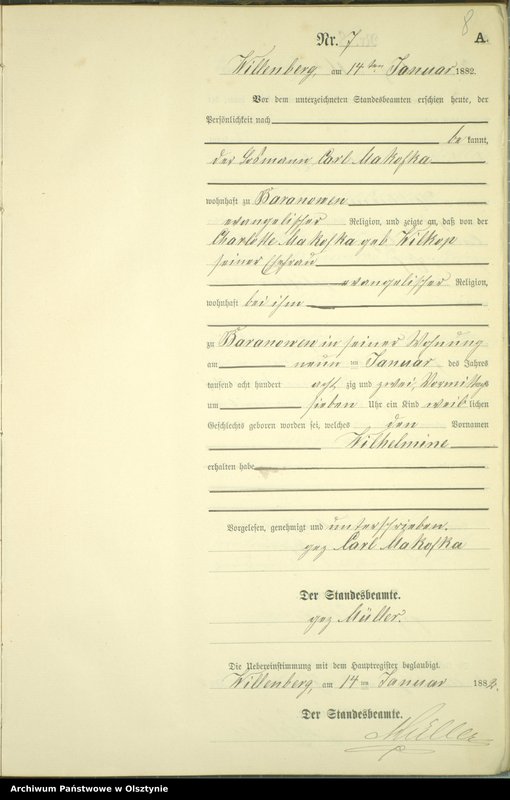 8
Nr. 7 A.
Willenberg, am 14ten Januar 1882.
Vor dem unterzeichneten Standesbeamten erschien heute, der
Persönlichkeit nach
be kannt,
der Losmann Carl Makoska
wohnhaft zu Baranowen
evangelischer Religion, und zeigte an, daß von der
Charlotte Makoska geb Wilkop
seiner Ehefrau
evangelischer Religion,
wohnhaft bei ihm
zu Baranowen in seiner Wohnung
am neun ten Januar des Jahres
tausend acht hundert acht zig und zwei, Vormittags
um sieben Uhr ein Kind weib lichen
Geschlechts geboren worden sei, welches den Vornamen
Wilhelmine
erhalten habe
Vorgelesen, genehmigt und unterschrieben.
gez Carl Makoska
Der Standesbeamte.
gez Müller.
Die Uebereinstimmung mit dem Hauptregister beglaubigt.
Willenberg, am 14 ten Januar 1882.
Der Standesbeamte.
Müller
Archiwum Państwowe w Olsztynie